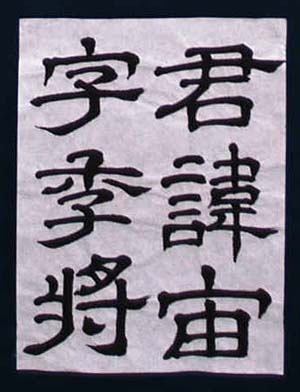 君諱宙
字季將